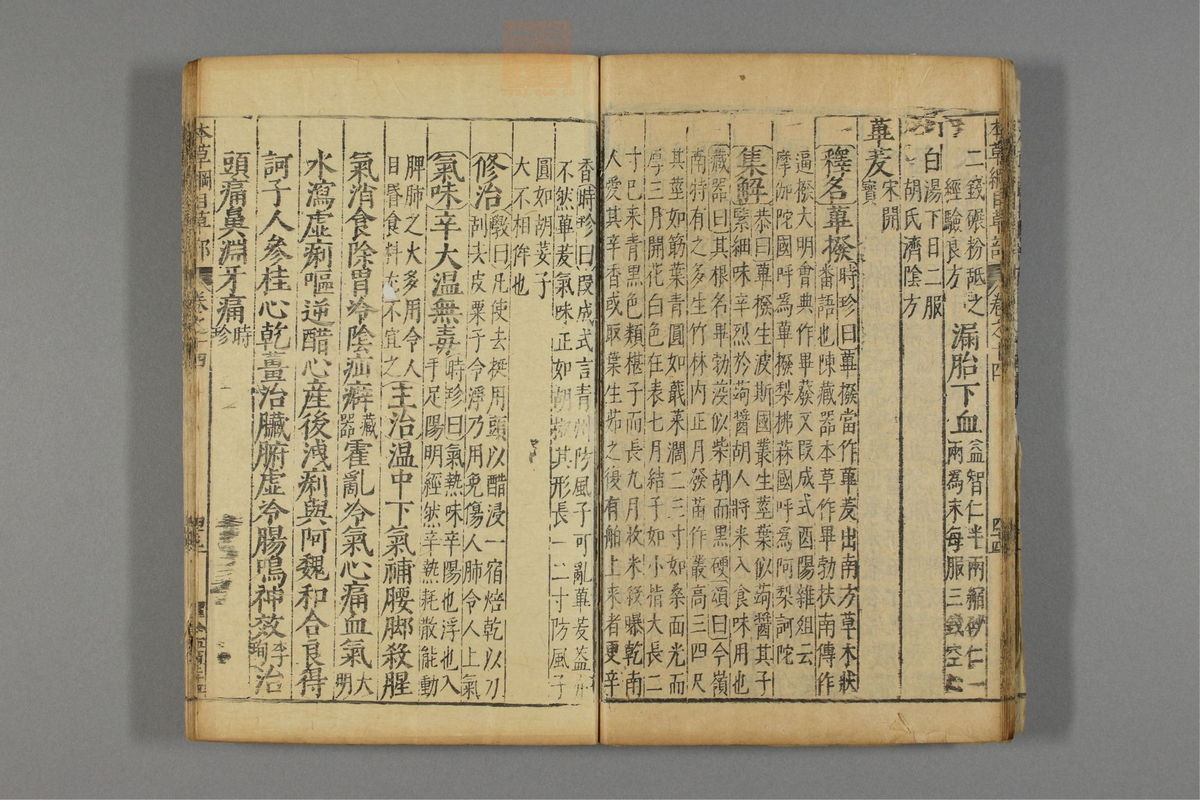 本草綱目草部 卷之十四 四十四
二錢碾粉砥之
經驗良方
漏胎下血
益智仁半兩縮砂仁一
兩爲末每服三錢空心
白湯下日二服
胡氏濟陰方
蓽茇
宋開
寶
釋名蓽撥
時珍曰蓽撥當作蓽茇出南方草木狀
番語也陳藏器本草作畢勃扶南傳作
逼撥大明會典作畢蕟又段成式酉陽雜組云
摩伽陀國呼爲蓽撥梨拂菻國呼爲阿梨訶陀
集解
恭曰蓽撥生波斯國叢生莖葉似蒟醬其子
緊細味辛烈於蒟醬胡人將來入食味用也
藏器曰其根名畢勃菠似柴胡而黑硬頌曰今嶺
南特有之多生竹林内正月發苗作叢高三四尺
其莖如筯葉青圓如蕺菜濶二三寸如桑面光而
厚三月開花白色在表七月結子如小指大長二
寸已來青黑色類椹子而長九月收采殺曝乾南
人愛其辛香或取葉生茹之後有舶上來者更辛
香時珍曰段成式言青州防風子可亂蓽茇蓋亦
不然蓽茇氣味正如胡椒其形長一二寸防風子
圓如胡荽子
大不相侔也
修治
斅曰凡使去挺用頭以醋浸一宿焙乾以刀
刮去皮粟子令淨乃用免傷人肺令人上氣
氣味辛大温無毒
時珍曰氣熱味辛陽也浮也入
手足陽明經然辛熱耗散能動
脾肺之火多用令人
目昏食料尤不宜之
主治温中下氣補腰脚殺腥
氣消食除胃冷陰疝癖
藏
器
霍亂冷氣心痛血氣
大
明
水瀉虚痢嘔逆醋心産後洩痢與阿魏和合良得
訶子人參桂心乾薑治臟腑虛冷腸鳴神效
李
珣
治
頭痛鼻淵牙痛
時
珍
本草綱目草部 卷之十四